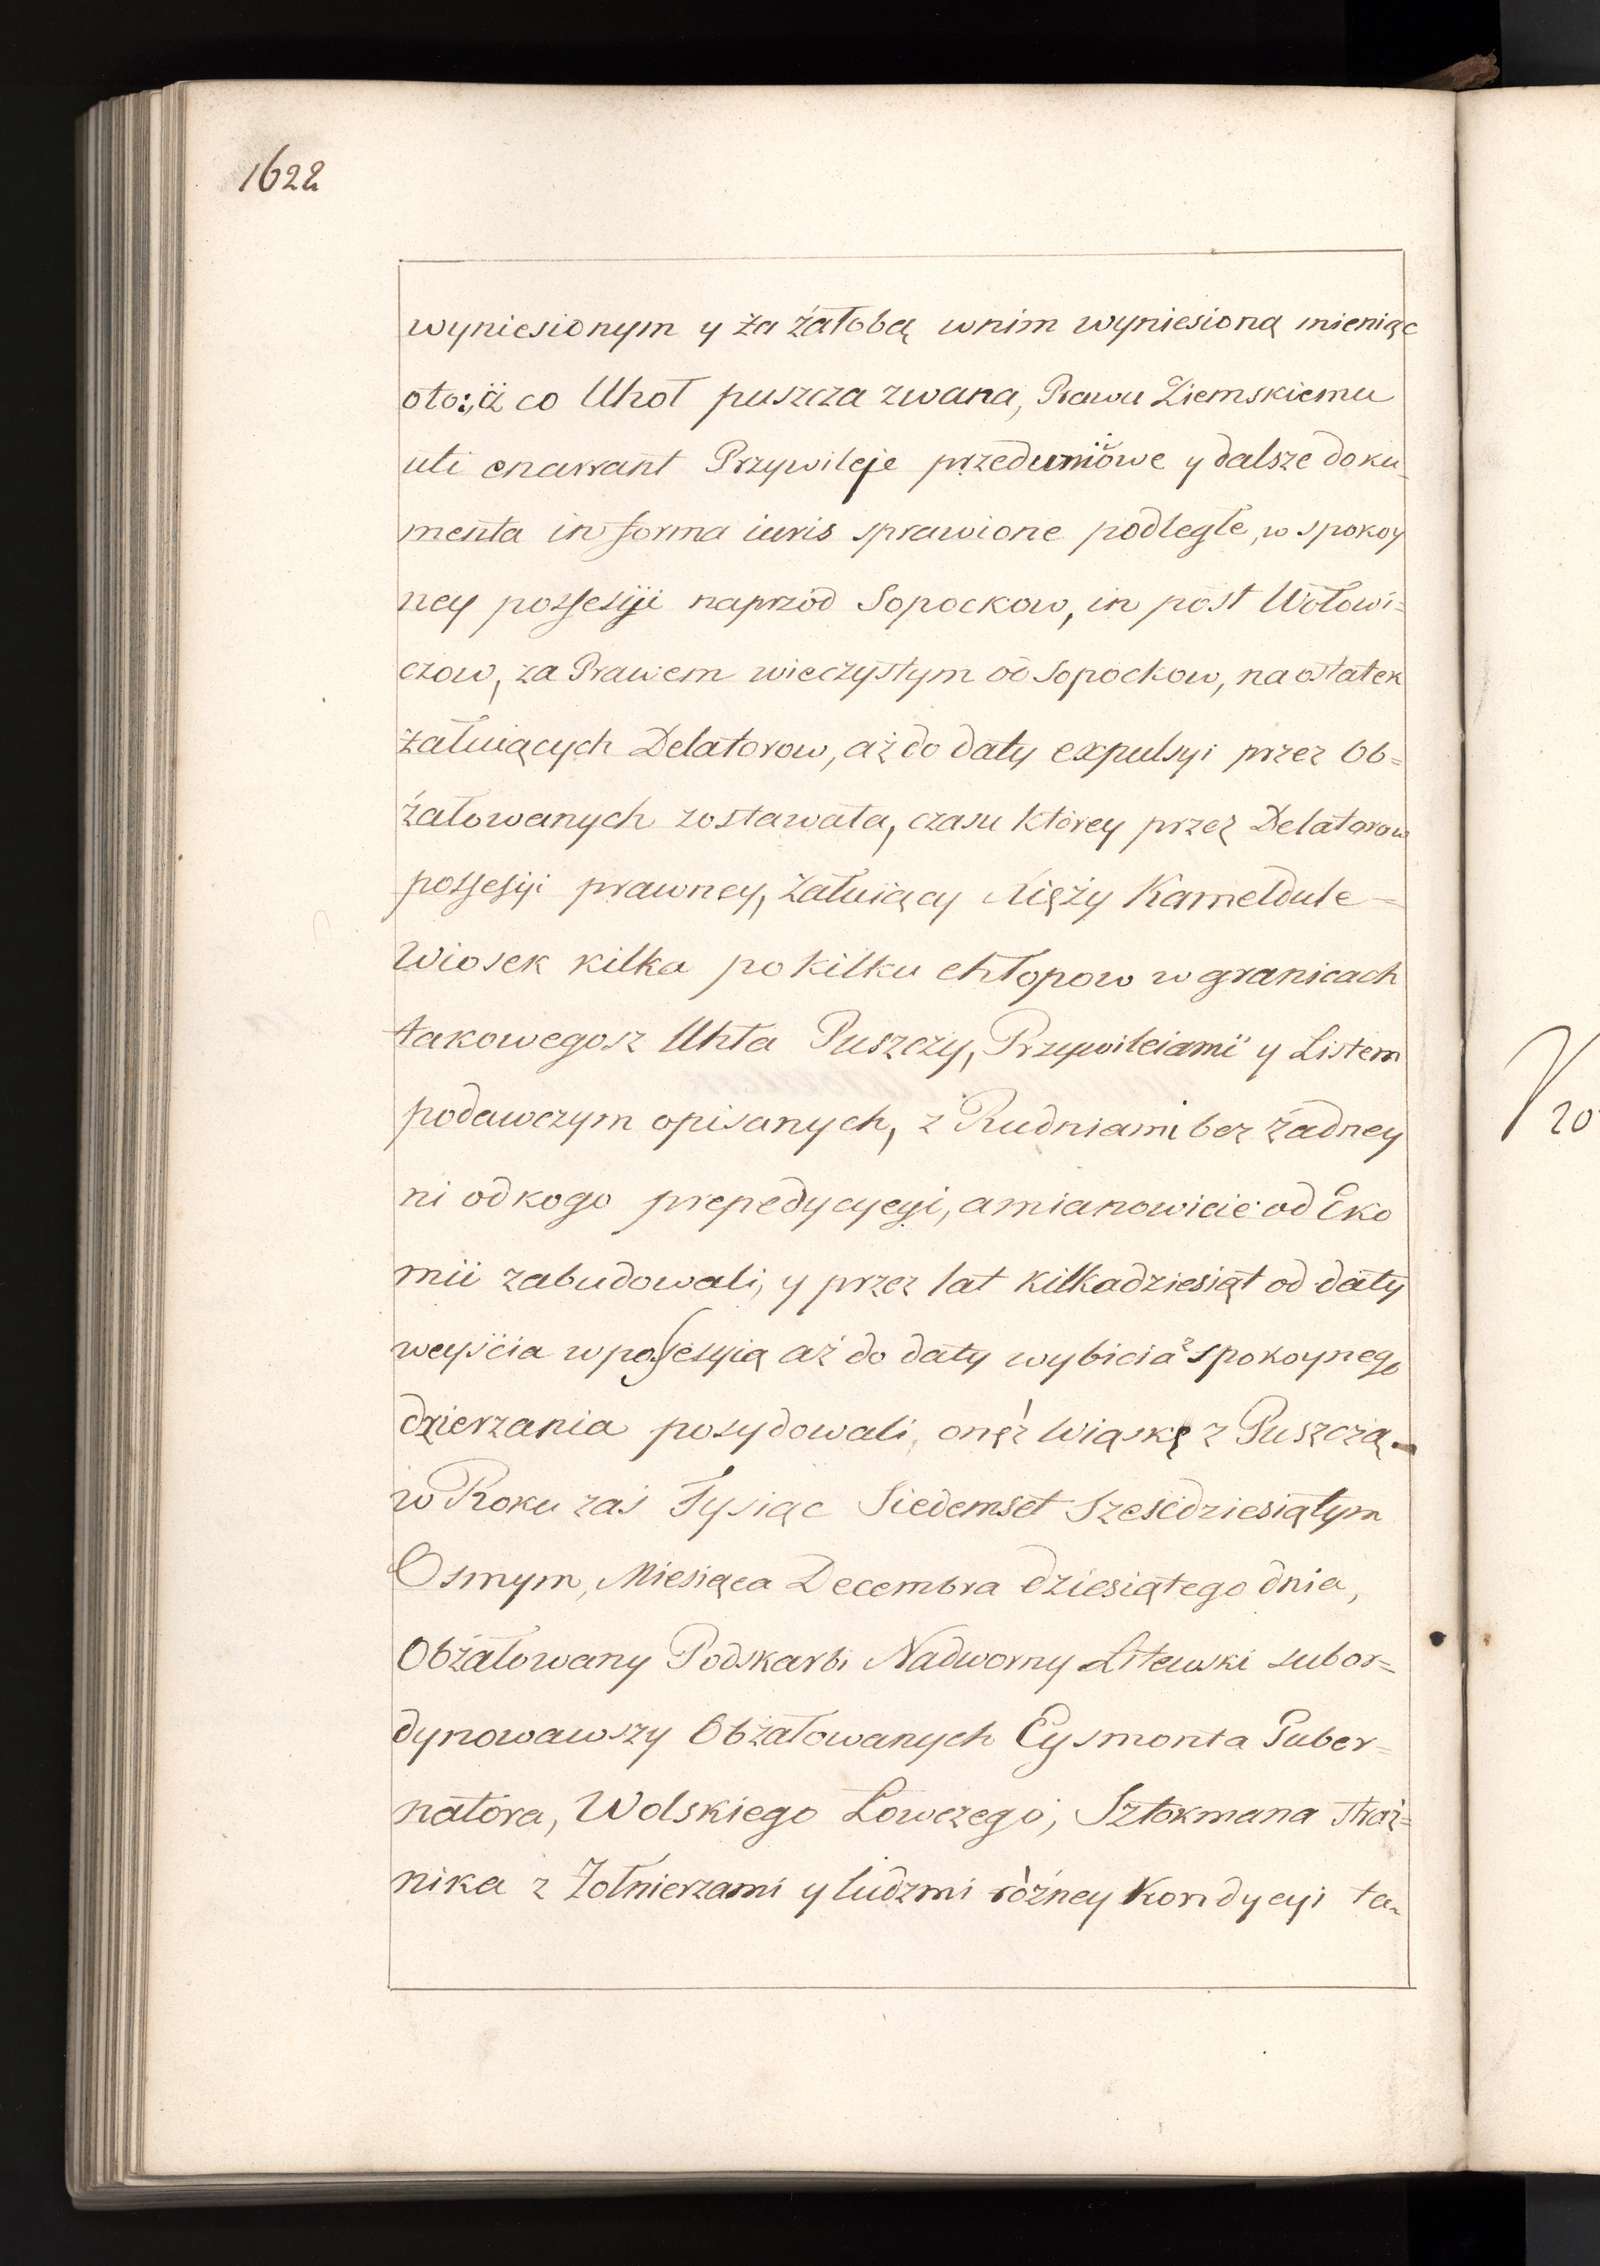 1622
wyniesionym y za żałobą wnim wyniesioną mieniąc
oto:, iż co Uhoł puszcza zwana, Prawu Ziemskiemu
uti enarrant Przywileje przeduniowe y dalsze doku-
menta in forma iuris sprawione podległe, w spokoy
ney possesyi naprzod Sopockow, in post Wołowi=
czow, za Prawem wieczystym od Sopockow, na ostatek
żałuiących Delatorow, aż do daty expulsyi przez Ob=
żałowanych zostawała, czasu ktorey przez Delatorow
possesyi prawney, żałuiący Xięży Kameldule
Wiosek kilka po kilku chłopow w granicach
takowegosz Uhła Puszczy, Przywileiami y Listem
podawczym opisanych, z Rudniami bez żadney
ni od kogo prepedycycyi, a mianowicie od Eko
mii zabudowali, y przez lat kilkadziesiąt od daty
weyścia w possesyią aż do daty wybicia z spokoynego
dzierzania posydowali, onęż Wioskę z Puszczą
w Roku zaś Tysiąc Siedemset Sześćdziesiątym
Osmym, Miesiąca Decembra dziesiątego dnia,
Obżałowany Podskarbi Nadworny Litewski subor=
dynowawszy Obżałowanych Eysmonta Guber=
natora, Wolskiego Łowczego, Sztokmana Straż=
nika z Żołnierzami y ludzmi różney Kondycyi ta-